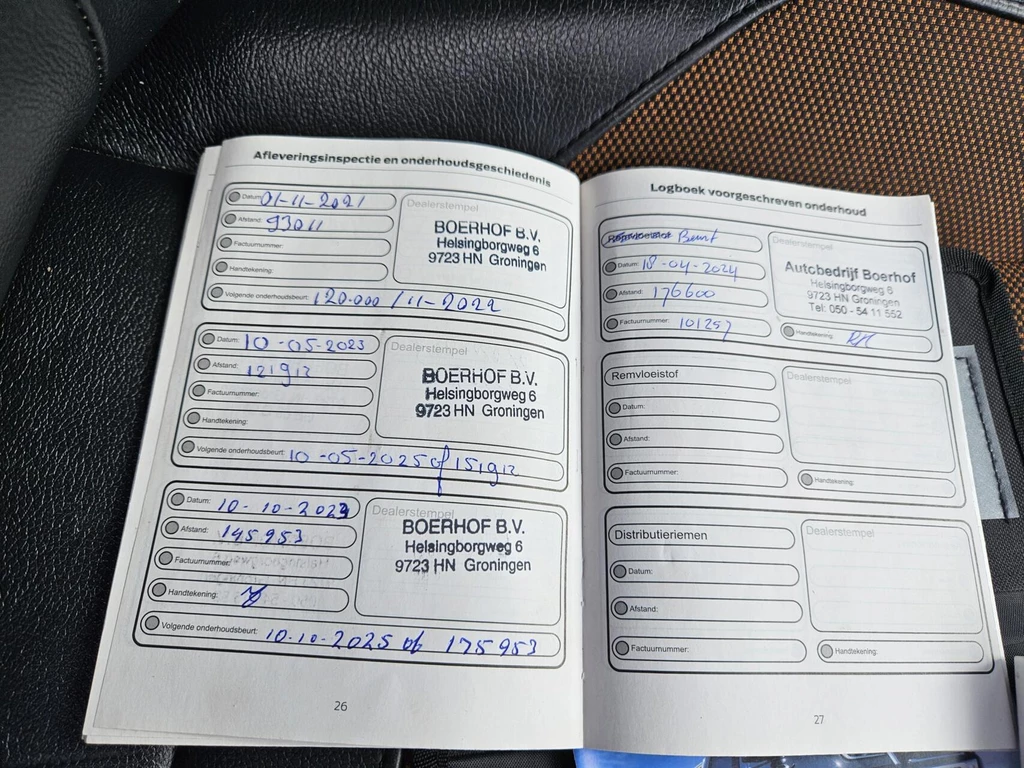 Afleveringsinspectie en onderhoudsgeschiedenis
Datum: 01-11-2021
Afstand: 93011
Factuurnummer:
Handtekening:
Volgende onderhoudsbeurt: 120.000 / 11-2022
Dealerstempel
BOERHOF B.V.
Helsingborgweg 6
9723 HN Groningen
Datum: 10-05-2023
Afstand: 121912
Factuurnummer:
Handtekening:
Volgende onderhoudsbeurt: 10-05-2025 of 151912
Dealerstempel
BOERHOF B.V.
Helsingborgweg 6
9723 HN Groningen
Datum: 10-10-2023
Afstand: 145953
Factuurnummer:
Handtekening:
Volgende onderhoudsbeurt: 10-10-2025 of 175953
Dealerstempel
BOERHOF B.V.
Helsingborgweg 6
9723 HN Groningen
26
Logboek voorgeschreven onderhoud
Remvloeistof Beurt
Datum: 18-04-2024
Afstand: 176600
Factuurnummer: 101257
Dealerstempel
Autobedrijf Boerhof
Helsingborgweg 6
9723 HN Groningen
Tel: 050 - 54 11 552
Handtekening:
Remvloeistof
Datum:
Afstand:
Factuurnummer:
Dealerstempel
Handtekening:
Distributieriemen
Datum:
Afstand:
Factuurnummer:
Dealerstempel
Handtekening:
27